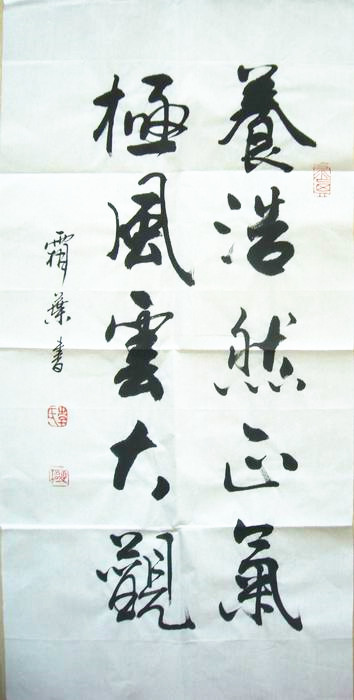 養浩然正氣
極風雲大觀
霜葉書